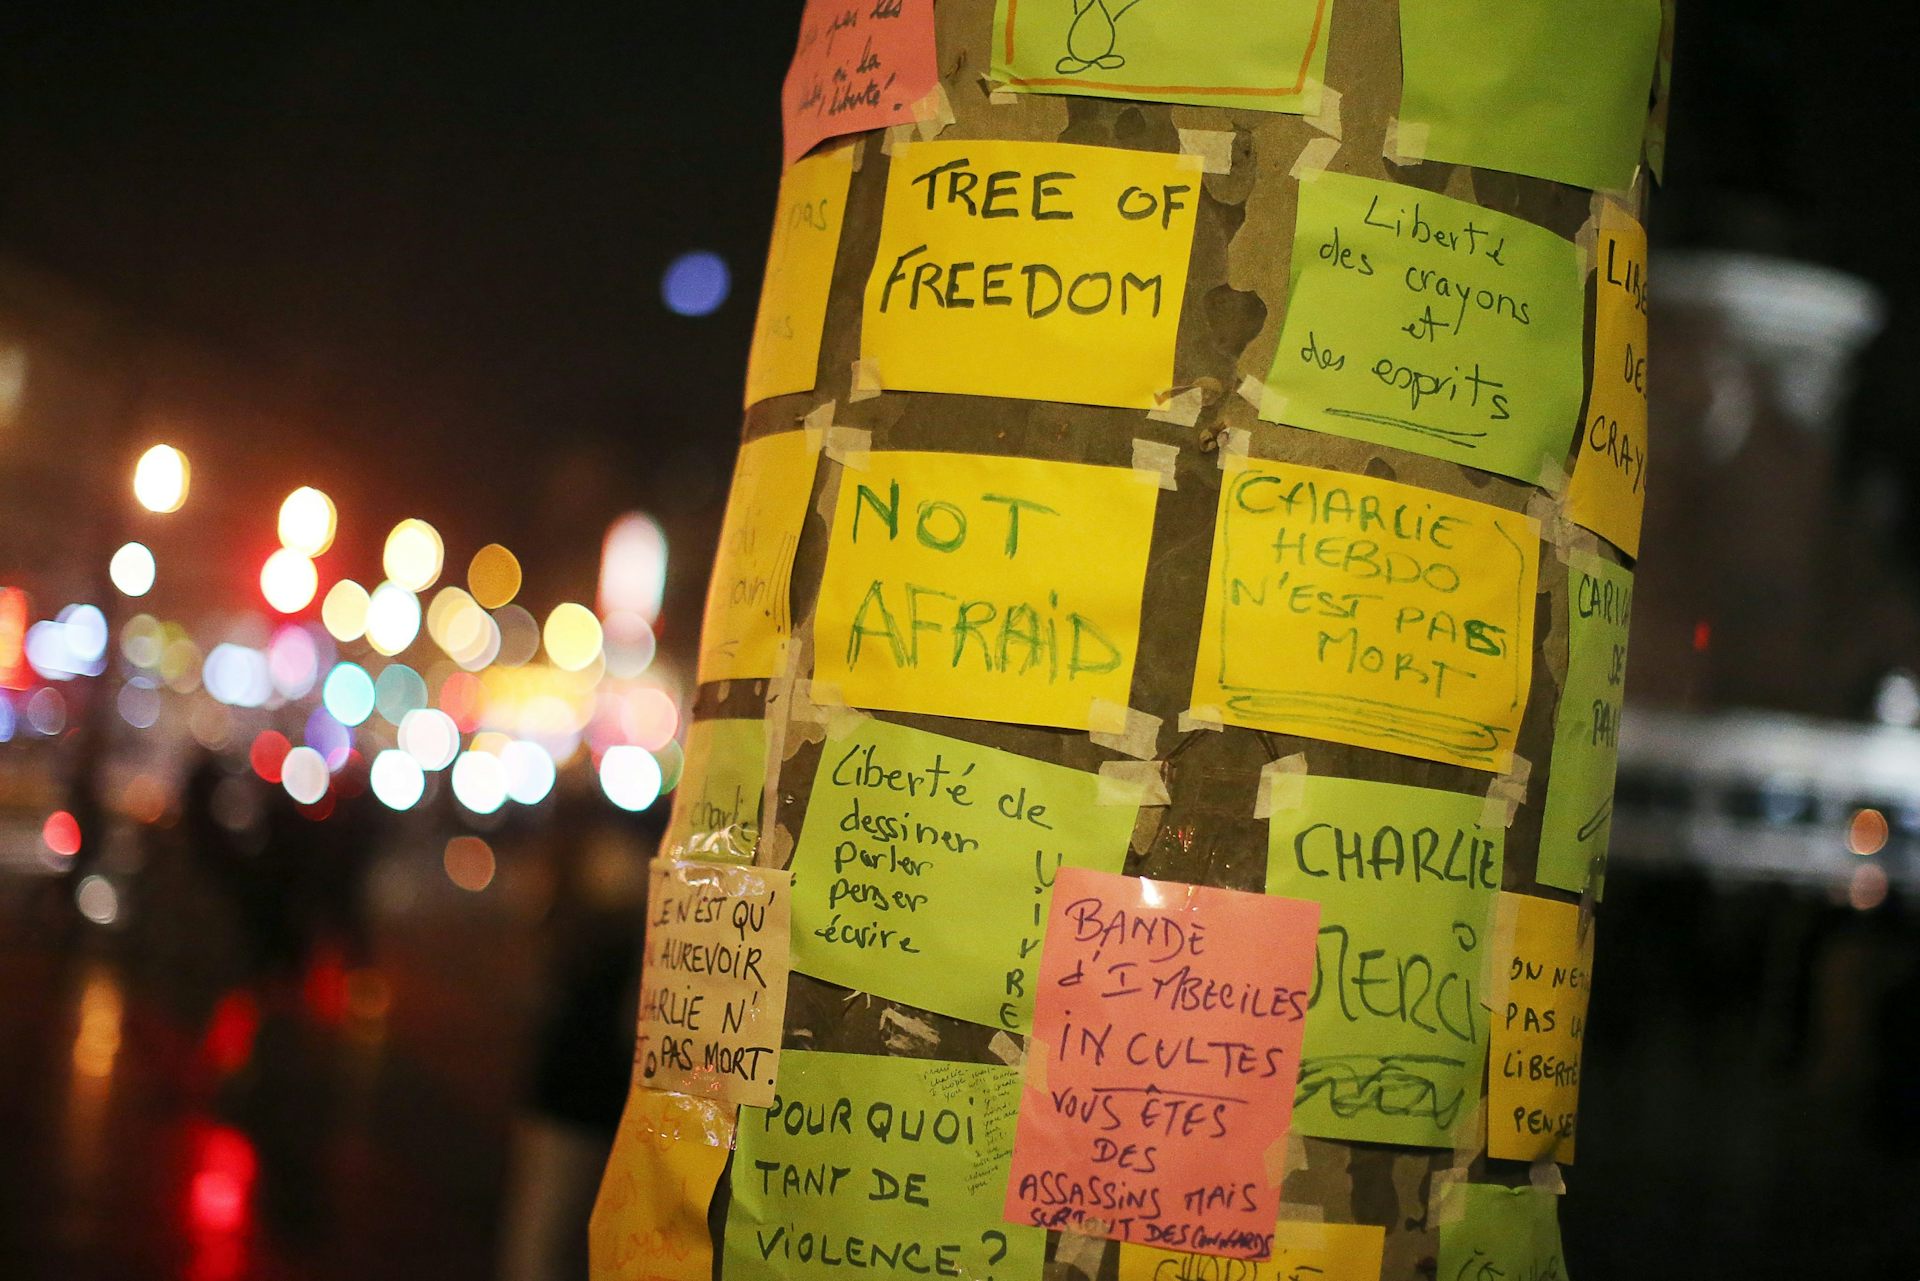 liberté!
TREE OF
FREEDOM
Liberté
des crayons
et
des esprits
LIBE
DE
CRAY
pas
NOT
AFRAID
CHARLIE
HEBDO
N'EST PAS
MORT
CARI
DE
PAI
charlie
Liberté de
dessiner
parler
penser
écrire
U
i
V
R
E
CHARLIE
MERCI
CE N'EST QU'
AUREVOIR
CHARLIE N'
PAS MORT.
BANDE
d'IMBECILES
INCULTES
VOUS ÊTES
DES
ASSASSINS MAIS
SURTOUT DES CONNARDS
ON NE
PAS LA
LIBERTÉ
PENSE
POURQUOI
TANT DE
VIOLENCE?
CHARLIE